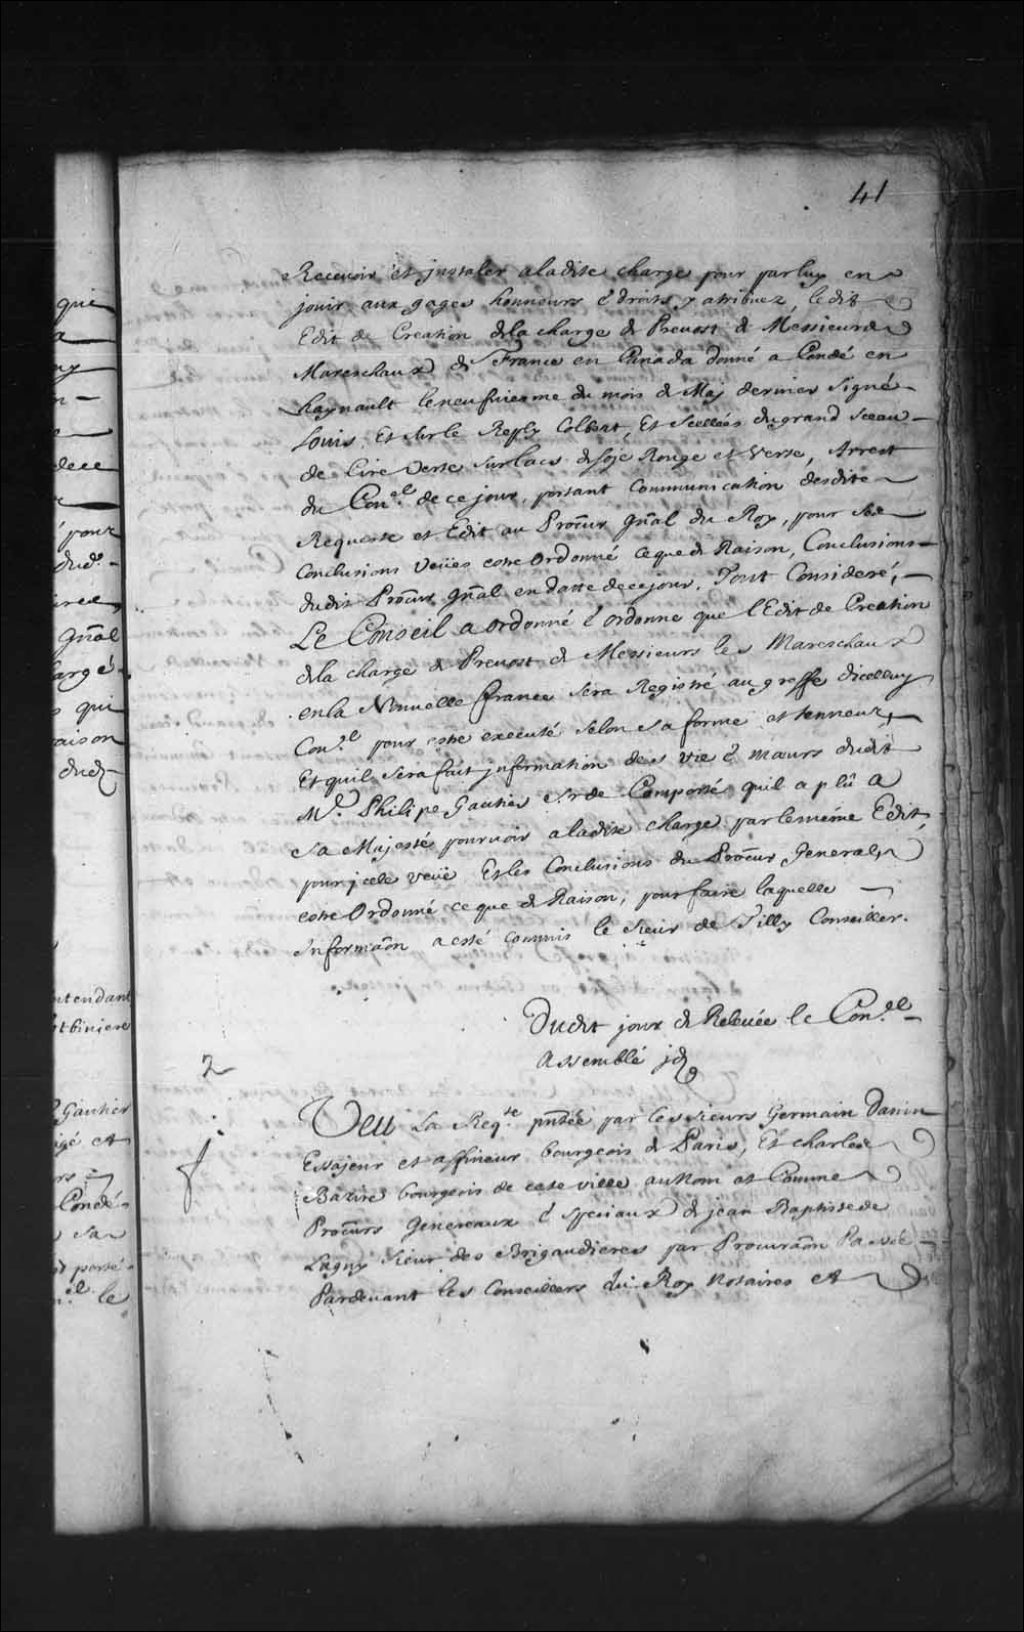 41
Recevoir et jnstaler aladite charge pour par luy en
jouir aux gages honneurs & droits y atribuez, ledit
Edit de Creation dela charge de Prevost de Messieurs
Mareschaux de France en Canada donné a Condé en
haynault le neufviesme du mois de May dernier Signé
Louis Et sur le Reply Colbert, Et Scellées du grand Sceau
de Cire Verte sur lacs de soye Rouge et Verte, Arrest
du Con.el de ce jour, portant Communication desdite
Requeste et Edit au Procur gnal du Roy, pour ses
Conclusions Veües estre Ordonné ce que de Raison, Conclusions
dudit Procur gnal en datte de ce jour. Tout Consideré,
Le Conseil a ordonné & ordonne que l'Edit de Creation
dela charge de Prevost de Messieurs les Mareschaux
en la Nouvelle france sera Registré au greffe dicelluy
Con.el pour estre executé selon sa forme et tenneur,
Et quil sera fait jnformation des vie & mœurs dudit
M.e Philipe Gautier Sr de Comporté quil a plû a
sa Majesté pourvoir aladite charge par le méme Edit,
pour jcelle veüe Et les Conclusions du Procur General,
estre Ordonné ce que de Raison, pour faire laquelle
Informaon a esté commis le sieur de Tilly Conseiller.
Dudit jour de Relevée le Con.el
Assemblé
2
Veu La Req.te pntée par les sieurs Germain Danin
Essajeur et affineur bourgeois de Paris, Et charles
Bazire bourgeois de cete ville au Nom et Comme
Procurs Generaux & speciaux de jean Baptiste de
Lagny sieur des Brigaudieres par Procuraon Passée
Pardevant les Conseillers du Roy Notaires et
qui
a
dece
pour
dud.
gnal
argé
qui
raison
dud.
ntendant
tbiniere
Gautier
agé et
Condé
sa
porté
el le